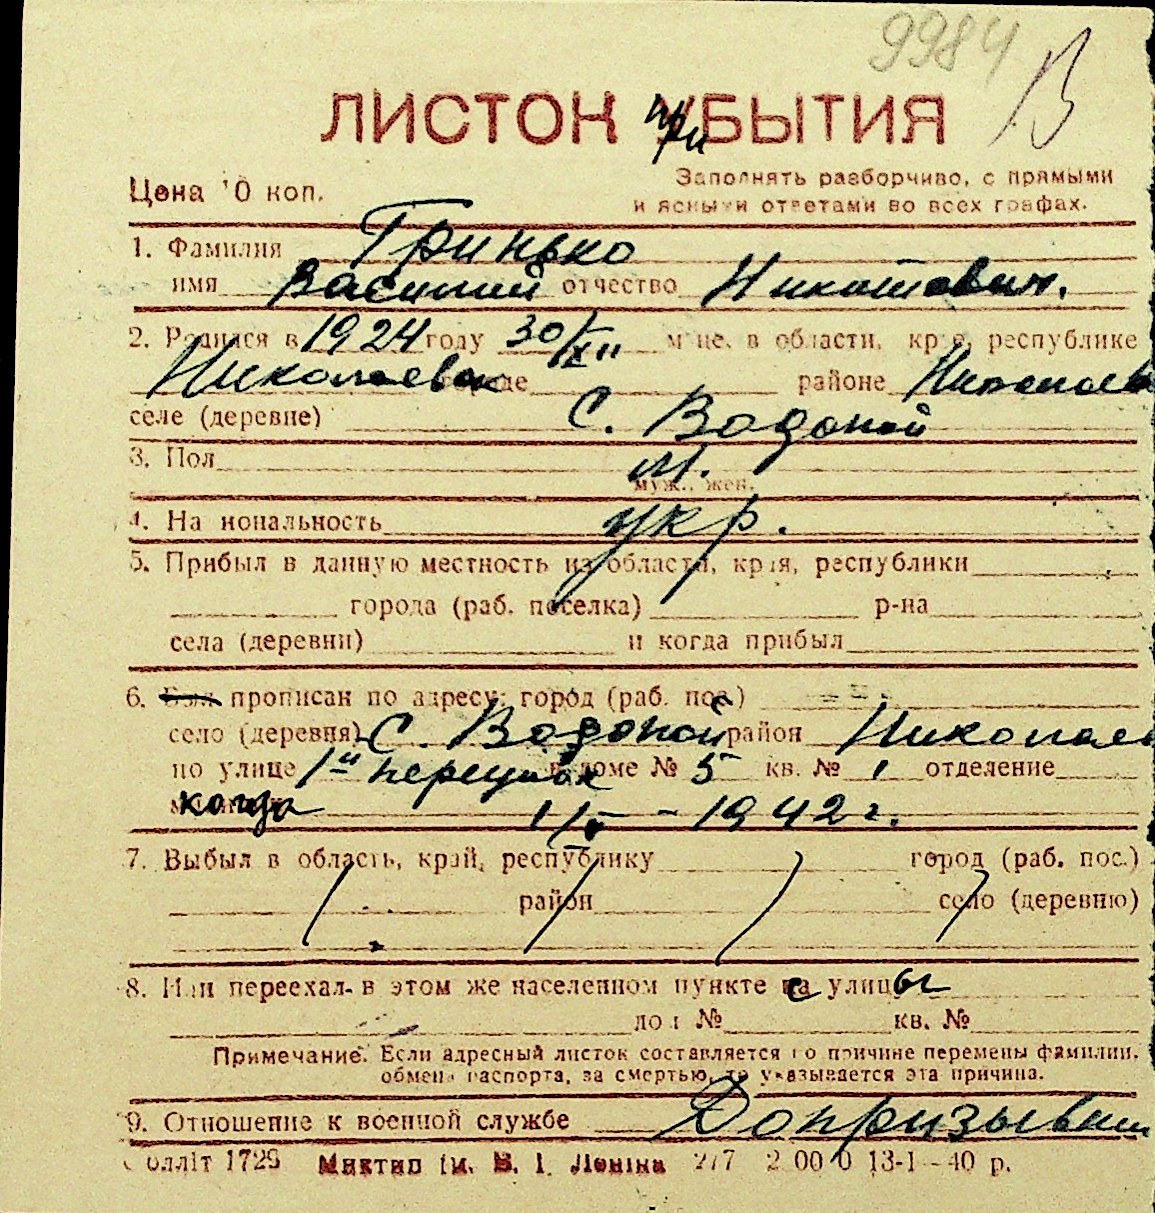 9984 В
ЛИСТОК прибытия
Цена 10 коп.
Заполнять разборчиво, с прямыми
и ясными ответами во всех графах.
1. Фамилия Гринько
имя Василий отчество Никитович.
2. Родился в 1924 году 30/XII м-це, в области, крае, республике
Николаевск городе районе Николаев
селе (деревне) с. Водопой
3. Пол м.
муж., жен.
4. Национальность укр.
5. Прибыл в данную местность из области, края, республики
города (раб. поселка) р-на
села (деревни) и когда прибыл
6. Был прописан по адресу: город (раб. пос.)
село (деревня) с. Водопой район Николаев
по улице 1й переулок в доме № 5 кв. № 1 отделение
когда 1/V - 1942 г.
7. Выбыл в область, край, республику город (раб. пос.)
район село (деревню)
8. Или переехал в этом же населенном пункте с улицы
дом № кв. №
Примечание. Если адресный листок составляется по причине перемены фамилии,
обмена паспорта, за смертью, то указывается эта причина.
9. Отношение к военной службе Допризывник
олліт 1729 Миктип ім. В. І. Леніна 277 2 00 0 13-1-40 р.